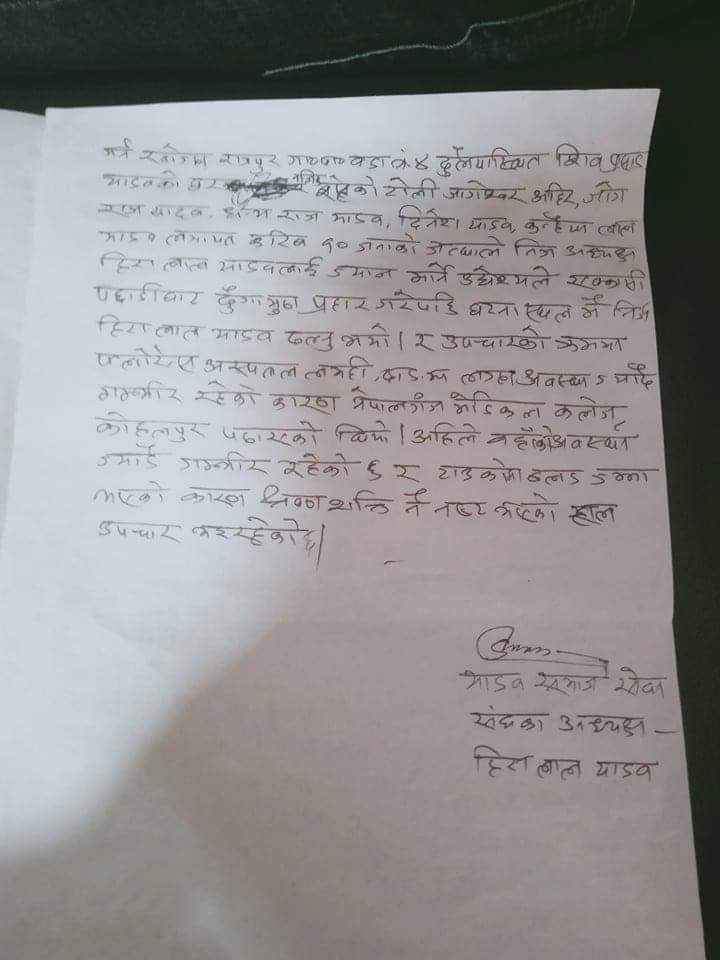 मर्ने खोजेका राजपुर गा०पा० वडा नं. ४ स्थित शिव प्रसाद
यादवको घर नजिक रहेको टोली जागेश्वर अहिर, जोग
राज यादव, राज यादव, दिनेश यादव, कन्हैया लाल
यादव लगायत करिब १० जनाको जत्थाले निज अध्यक्ष
हिरा लाल यादवलाई ज्यान मार्ने उद्देश्यले एक्कासी
पछाडीबाट ढुँगा प्रहार गरेपछि घटना स्थल मै निज
हिरा लाल यादव ढल्नु भयो। र उपचारको क्रममा
अस्पताल लमही, दाङ मा लग्दा अवस्था ज्यादै
गम्भीर रहेको कारण नेपालगंज मेडिकल कलेज,
कोहलपुर पठाएको थियो। अहिले वहाँको अवस्था
ज्यादै गम्भीर रहेको छ र टाउकोमा ब्लड जम्मा
भएको कारण शक्ति नै नष्ट भएको हाल
उपचार भइरहेको छ।
यादव समाज सेवा
संघका अध्यक्ष –
हिरा लाल यादव